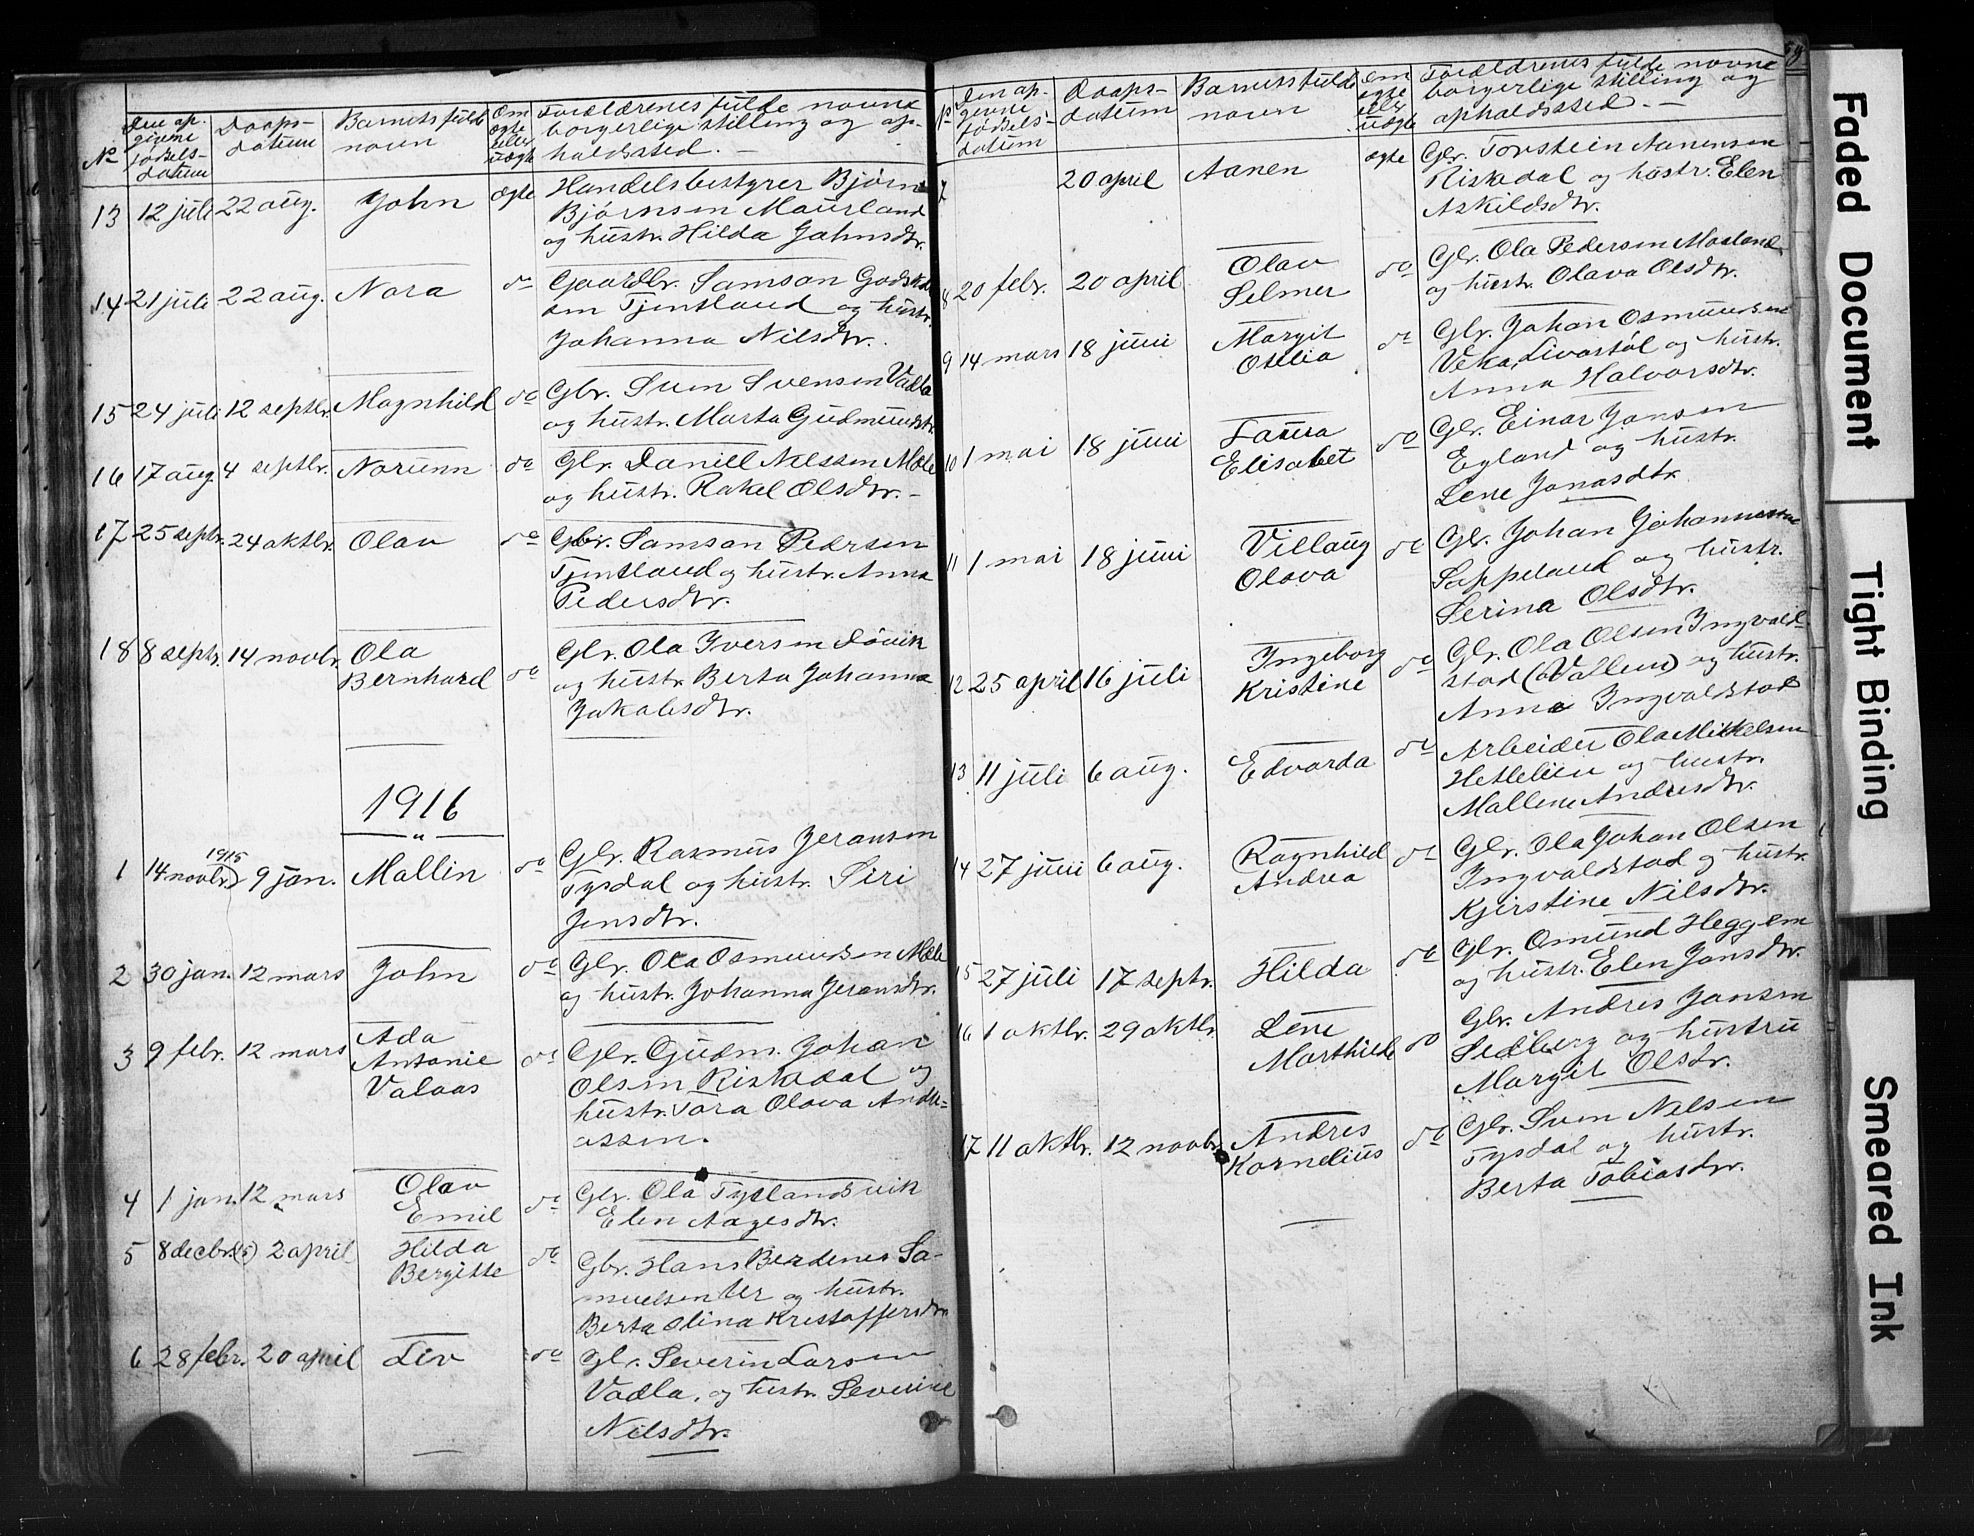 No Den op- Daaps- Barnets fulde Om Forældrenes fulde navne
givne datum navn ægte borgerlige stilling og op-
fødsels- eller holdssted.
datum uægte
13 12 juli 22 aug. John ægte Handelsbestyrer Bjørn
Bjørnsen Maurland
og hustr. Hilda Johnsdtr.
14 21 juli 22 aug. Nora do Gaardbr. Samson
sen Tjentland og hustr.
Johanna Nilsdtr.
15 24 juli 12 septbr. Magnhild do Gbr. Sven Svensen Vadla
og hustr. Marta Gudmundsdtr.
16 17 aug. 4 septbr. Norunn do Gbr. Daniel Nilssen Mæle
og hustr. Rakel Olsdtr.-
17 25 septbr. 24 oktbr. Olav do Gbr. Samson Pedersen
Tjentland og hustr. Anna
Pedersdtr.
18 8 septr. 14 novbr. Ola do Gbr. Ola Iversen Døvik
Bernhard og hustr. Berta Johanna
Jakobsdtr.
1916
"
1 14 novbr. 1915) 9 jan. Mallin do Gbr. Rasmus Jeransen
Tysdal og hustr. Siri
Jensdtr.
2 30 jan. 12 mars John do Gbr. Ola Osmundsen Mæle
og hustr. Johanna Jeransdtr.
3 9 febr. 12 mars Ada do Gbr. Gudm. Johan
Antonie Olsen Riskadal og
Valaas hustr. Tora Olava Andre=
assen.
4 1 jan. 12 mars Olav do Gbr. Ola Tytlandsvik
Emil Elen Aagesdtr.
5 8 decbr. (15) 2 april Hilda do Gbr. Hans Berdenes Sa-
Bergitte muelsen Ur og hustr.
Berta Olina Kristoffersdtr
6 28 febr. 20 april Liv do Gbr. Severin Larsen
Vadla, og hustr. Severine
Nilsdtr.
59
No Den op- Daaps- Barnets fulde Om Forældrenes fulde navne
givne datum navn ægte borgerlige stilling og
fødsels- eller opholdssted. -
datum uægte
7 20 april Aanen ægte Gbr. Torstein Aanensen
Riskadal og hustr. Elen
Askildsdtr.
8 20 febr. 20 april Olav do Gbr. Ola Pedersen Mosland
Selmer og hustr. Olava Olsdtr.
9 14 mars 18 juni Margit do Gbr. Johan Osmundsen
Otelia Veka, Livastøl og hustr.
Anna Halvorsdtr.
10 1 mai 18 juni Laura do Gbr. Einar Jonsen
Elisabet Eyland og hustr.
Lene Jonasdtr.
11 1 mai 18 juni Villaug do Gbr. Johan Johannessen
Olava Soppeland og hustr.
Serina Olsdtr.
12 25 april 16 juli Ingeborg do Gbr. Ola Olsen Ingvald-
Kristine stad (Vallem) og hustr.
Anna Ingvaldstad
13 11 juli 6 aug. Edvarda do Arbeider Ola Mikkelsen
Hetlelien og hustr.
Mallene Andresdtr.
14 27 juni 6 aug. Ragnhild do Gbr. Ola Johan Olsen
Andrea Ingvaldstad og hustr.
Kjerstine Nilsdtr.
15 27 juli 17 septr. Hilda do Gbr. Omund Heggem
og hustr. Elen Jonsdtr.
16 1 oktbr. 29 oktbr. Lene do Gbr. Andres Jonsen
Marthilde Sedberg og hustru
Margit Olsdtr.
17 11 oktbr. 12 novbr. Andres do Gbr. Sven Nilsen
Kornelius Tysdal og hustr.
Berta Tobiasdtr.
Faded Document
Tight Binding
Smeared Ink